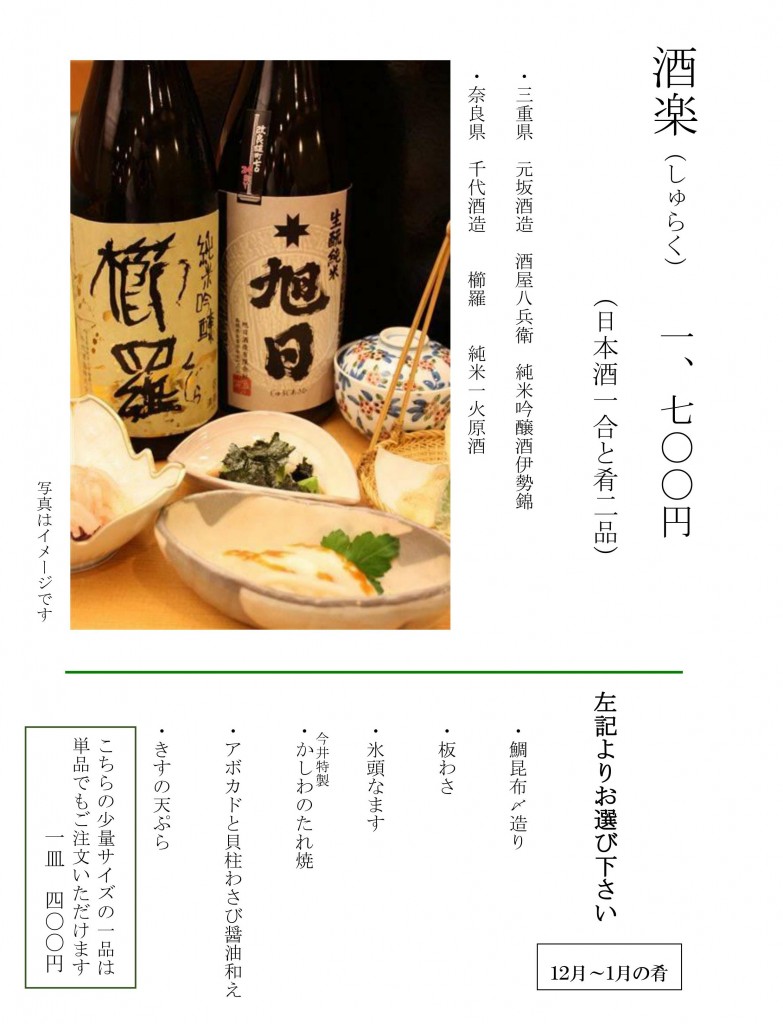 酒楽（しゅらく）　一、七〇〇円
（日本酒一合と肴二品）
・三重県　元坂酒造　酒屋八兵衛　純米吟醸酒伊勢錦
・奈良県　千代酒造　櫛羅　純米一火原酒
生酛純米
旭日
純米吟醸
櫛羅
くじら
写真はイメージです
左記よりお選び下さい
12月〜1月の肴
・鯛昆布〆造り
・板わさ
・氷頭なます
今井特製
・かしわのたれ焼
・アボカドと貝柱わさび醤油和え
・きすの天ぷら
こちらの少量サイズの一品は
単品でもご注文いただけます
一皿　四〇〇円